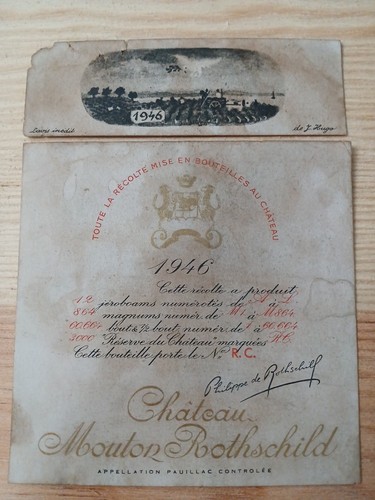 1946
Lavis inédit
de J. Hugo
TOUTE LA RÉCOLTE MISE EN BOUTEILLES AU CHÂTEAU
1946
Cette récolte a produit
12 jéroboams numérotés de A à L
864 magnums numér. de M1 à M864
bout. & 1/2 bout. numér. de 1 à
3000 "Réserve du Château" marquées R.C.
Cette bouteille porte le Nº R.C.
Philippe de Rothschild
Château
Mouton Rothschild
APPELLATION PAUILLAC CONTRÔLÉE